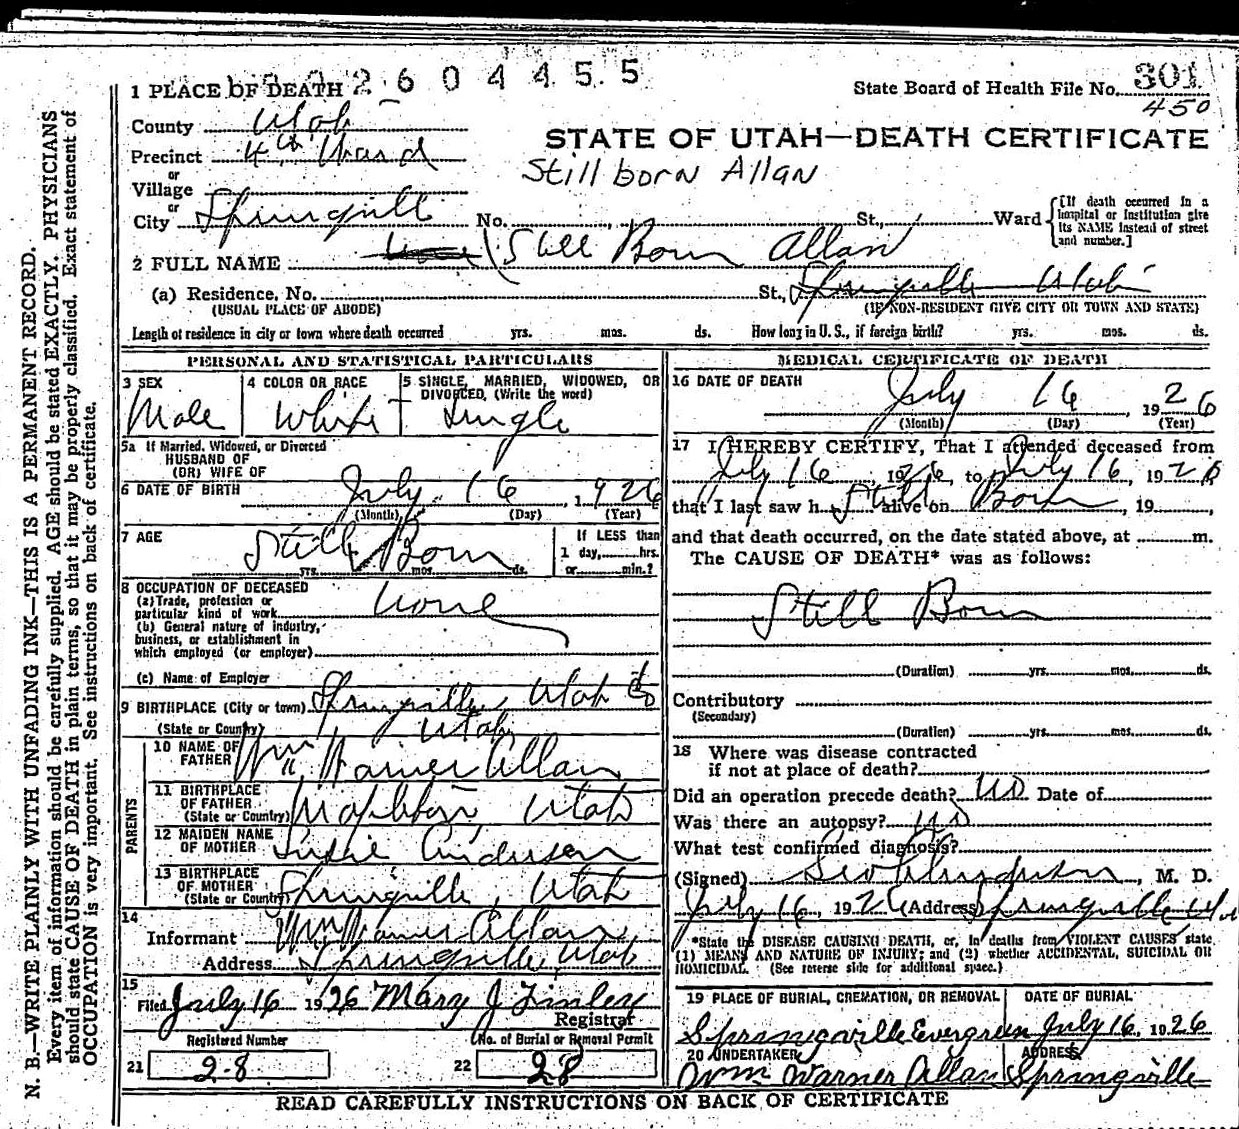 2 6 0 4 4 5 5
1 PLACE OF DEATH
State Board of Health File No. 301
450
County Utah
STATE OF UTAH—DEATH CERTIFICATE
Precinct 4th Ward
Stillborn Allan
or
Village
or
City Springville No. St., Ward
[If death occurred in a hospital or institution give its NAME instead of street and number.]
2 FULL NAME Still Born Allan
(a) Residence. No. St., Springville Utah
(USUAL PLACE OF ABODE) (IF NON-RESIDENT GIVE CITY OR TOWN AND STATE)
Length of residence in city or town where death occurred yrs. mos. ds. How long in U. S., if foreign birth? yrs. mos. ds.
PERSONAL AND STATISTICAL PARTICULARS
3 SEX Male
4 COLOR OR RACE White
5 SINGLE, MARRIED, WIDOWED, OR DIVORCED, (Write the word) Single
5a If Married, Widowed, or Divorced
HUSBAND OF
(OR) WIFE OF
6 DATE OF BIRTH July 16 1926
(Month) (Day) (Year)
7 AGE Still Born
yrs. mos. ds.
If LESS than
1 day, hrs.
or min.?
8 OCCUPATION OF DECEASED
(a) Trade, profession or
particular kind of work None
(b) General nature of industry,
business, or establishment in
which employed (or employer)
(c) Name of Employer
9 BIRTHPLACE (City or town) Springville, Utah
(State or Country) Utah
PARENTS
10 NAME OF FATHER Wm Warner Allan
11 BIRTHPLACE OF FATHER (State or Country) Mapleton, Utah
12 MAIDEN NAME OF MOTHER Susie Anderson
13 BIRTHPLACE OF MOTHER (State or Country) Springville, Utah
14
Informant Wm Warner Allan
Address Springville, Utah
15
Filed July 16 1926 Mary J Finley
Registrar
Registered Number
21 28
No. of Burial or Removal Permit
22 28
MEDICAL CERTIFICATE OF DEATH
16 DATE OF DEATH
July 16, 1926
(Month) (Day) (Year)
17 I HEREBY CERTIFY, That I attended deceased from
July 16 1926, to July 16, 1926
that I last saw h Still alive on Born, 19,
and that death occurred, on the date stated above, at m.
The CAUSE OF DEATH* was as follows:
Still Born
(Duration) yrs. mos. ds.
Contributory
(Secondary)
(Duration) yrs. mos. ds.
18 Where was disease contracted
if not at place of death?
Did an operation precede death? No Date of
Was there an autopsy? No
What test confirmed diagnosis?
(Signed) Geo, M. D.
July 16, 1926 (Address) Springville
*State the DISEASE CAUSING DEATH, or, in deaths from VIOLENT CAUSES state
(1) MEANS AND NATURE OF INJURY; and (2) whether ACCIDENTAL, SUICIDAL OR
HOMICIDAL. (See reverse side for additional space.)
19 PLACE OF BURIAL, CREMATION, OR REMOVAL
Springville Evergreen
DATE OF BURIAL
July 16, 1926
20 UNDERTAKER
Wm Warner Allan
ADDRESS
Springville
READ CAREFULLY INSTRUCTIONS ON BACK OF CERTIFICATE
N. B.—WRITE PLAINLY WITH UNFADING INK—THIS IS A PERMANENT RECORD.
Every item of information should be carefully supplied. AGE should be stated EXACTLY. PHYSICIANS
should state CAUSE OF DEATH in plain terms, so that it may be properly classified. Exact statement of
OCCUPATION is very important. See instructions on back of certificate.